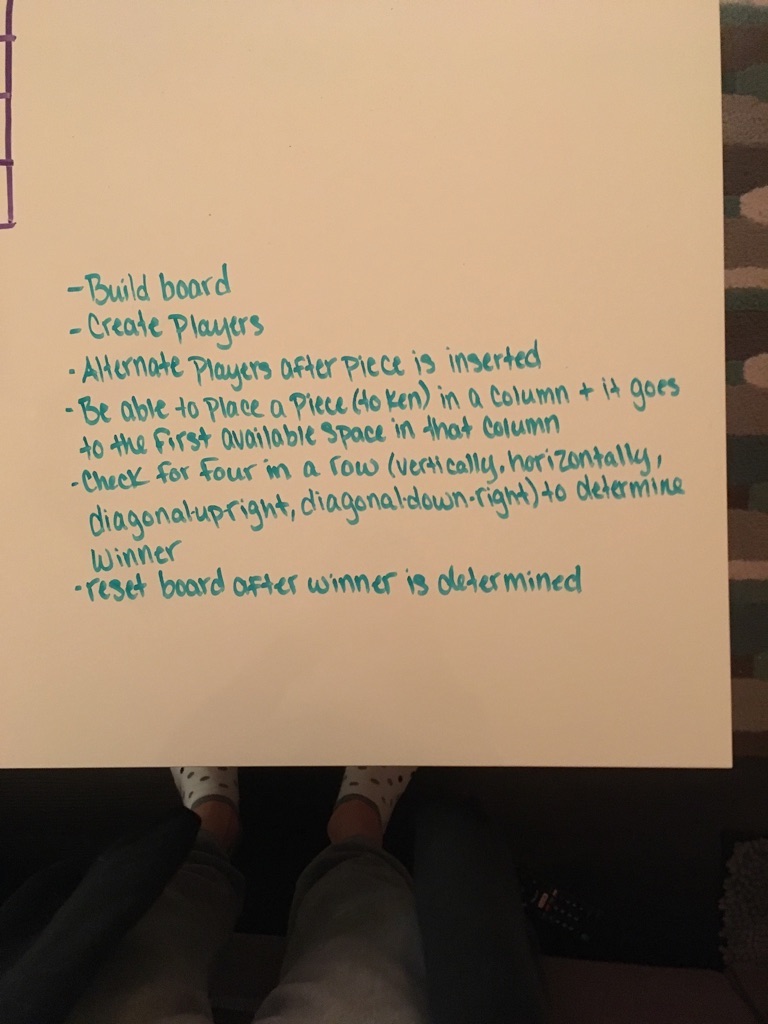 - Build board
- Create Players
- Alternate Players after piece is inserted
- Be able to place a piece (token) in a column + it goes
to the first available space in that column
- Check for four in a row (vertically, horizontally,
diagonal-up-right, diagonal-down-right) to determine
winner
- reset board after winner is determined